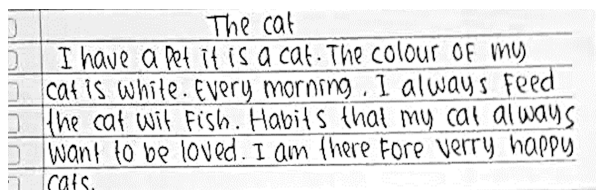 The cat
I have a Pet it is a cat. The colour OF my
cat is white. Every morning. I always Feed
the cat wit Fish. Habits that my cat always
want to be loved. I am there Fore verry happy
cats.